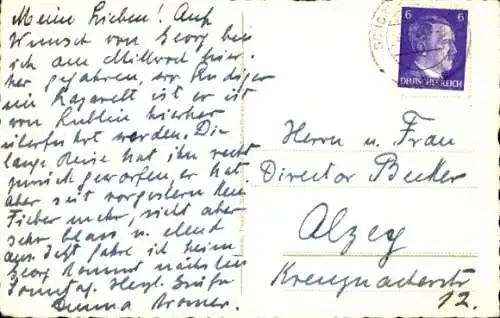 Meine Lieben! Auf
Wunsch von Georg bin
ich am Mittwoch hier
her gefahren, wo Rüdiger
im Lazarett ist er ist
von Lublin hierher
überführt worden. Die
lange Reise hat ihn recht
zurück geworfen, er hat
aber seit vorgestern kein
Fieber mehr, sieht aber
sehr blass u. elend
aus. Jetzt fahre ich heim
Georg kommt nächsten
Sonntag. Herzl. Grüße
Emma
6 6
DEUTSCHES REICH
Herrn u. Frau
Director Becker
Alzey
Kreuznacherstr
12.